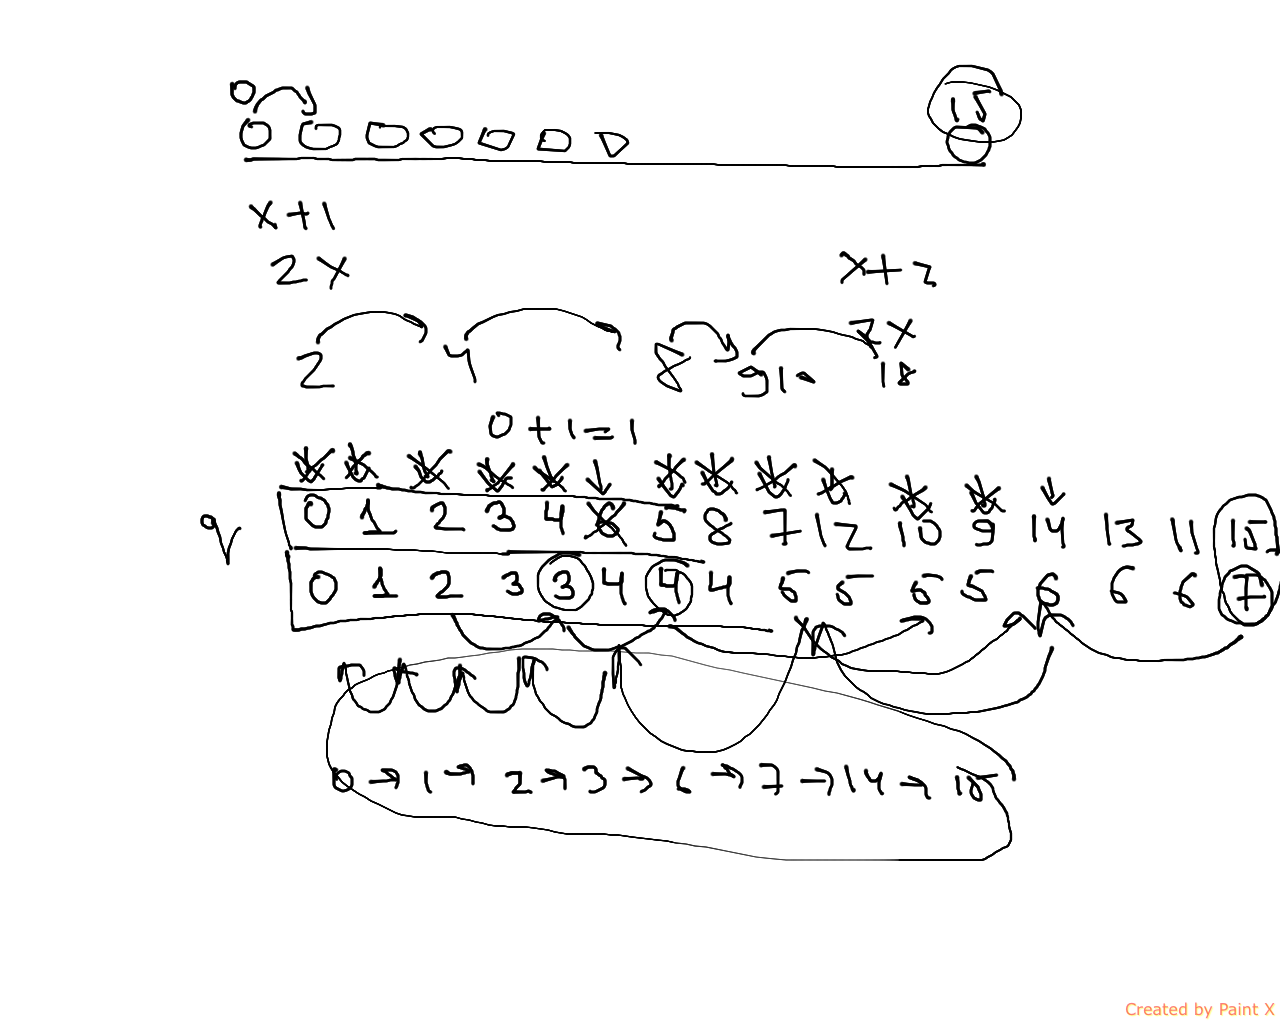 0
15
x+1
2x
x+2
2x
2 4 8 9 10 18
0+1=1
q
0 1 2 3 4 6 5 8 7 12 10 9 14 13 11 15
0 1 2 3 3 4 4 4 5 5 5 5 6 6 6 7
0 → 1 → 2 → 3 → 6 → 7 → 14 → 15
Created by Paint X